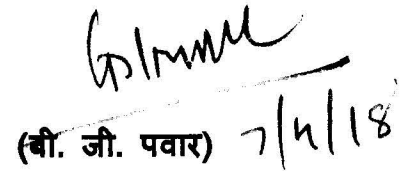 (बी. जी. पवार) 7/4/18